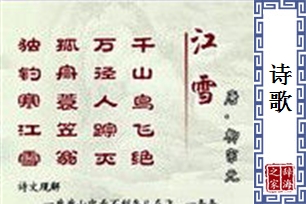 江雪
唐·柳宗元
千山鸟飞绝
万径人踪灭
孤舟蓑笠翁
独钓寒江雪
诗文观解
诗歌
辞海之家